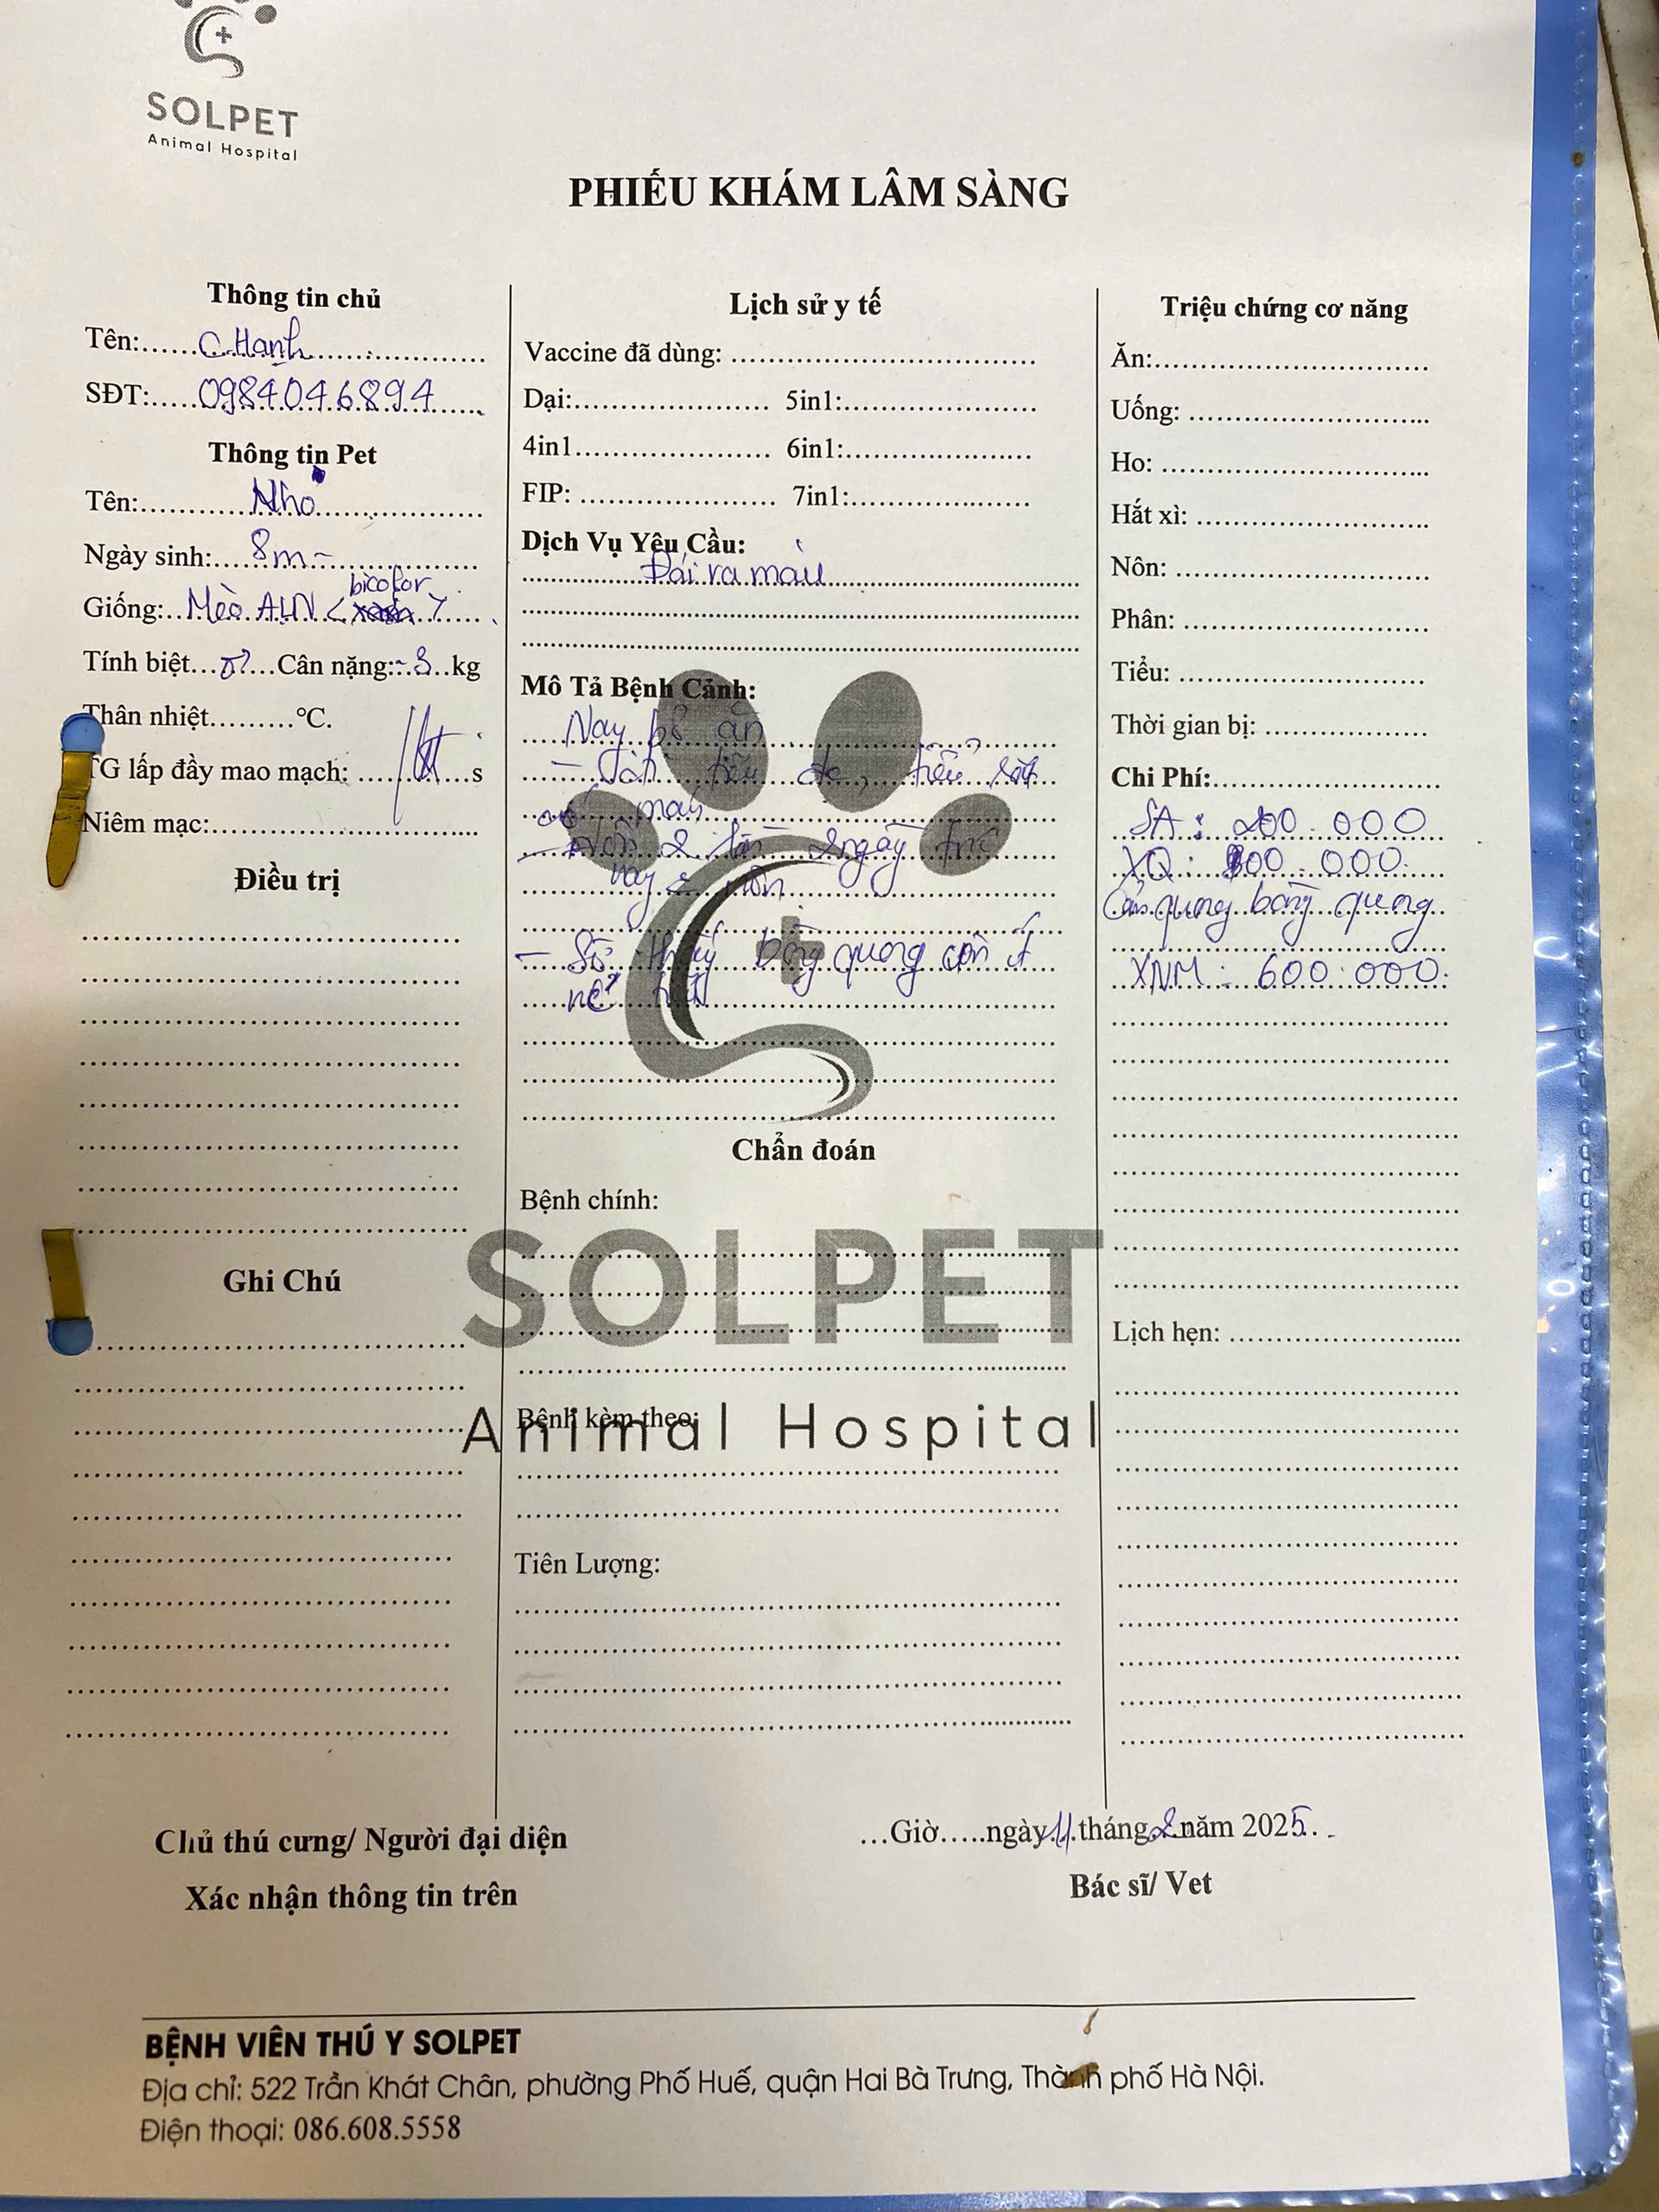 SOLPET
Animal Hospital
PHIẾU KHÁM LÂM SÀNG
Thông tin chủ
Tên:......C.Hạnh......................
SĐT:.....0984046894......
Thông tin Pet
Tên:............Nho......................
Ngày sinh:.....8m~....................
bicolor
Giống:..Mèo ALN < >.....
Tính biệt...♂...Cân nặng:~3..kg
Thân nhiệt.........°C.
TG lấp đầy mao mạch: ..............s
Niêm mạc:..............................
Điều trị
Ghi Chú
Lịch sử y tế
Vaccine đã dùng: .......................................
Dại:......................... 5in1:.........................
4in1......................... 6in1:........................
FIP: ......................... 7in1:.......................
Dịch Vụ Yêu Cầu:
Đái ra máu
Mô Tả Bệnh Cảnh:
Nay bỏ ăn
- tiểu , tiểu rắt
máu
- Nôn 2 lần 2 ngày trc
nay nôn
- Sờ thấy bàng quang còn ít
nc tiểu
Chẩn đoán
Bệnh chính:
SOLPET
Animal Hospital
Bệnh kèm theo:
Tiên Lượng:
Triệu chứng cơ năng
Ăn:....................................
Uống: ................................
Ho: ...................................
Hắt xì: ..............................
Nôn: .................................
Phân: ................................
Tiểu: .................................
Thời gian bị: .....................
Chi Phí:..............................
SA : 200.000
XQ : 000
quang bàng quang
XNM : 600.000.
Lịch hẹn: ..............................
...Giờ.....ngày.11.tháng.2.năm 2025..
Chủ thú cưng/ Người đại diện
Xác nhận thông tin trên
Bác sĩ/ Vet
BỆNH VIÊN THÚ Y SOLPET
Địa chỉ: 522 Trần Khát Chân, phường Phố Huế, quận Hai Bà Trưng, Thành phố Hà Nội.
Điện thoại: 086.608.5558